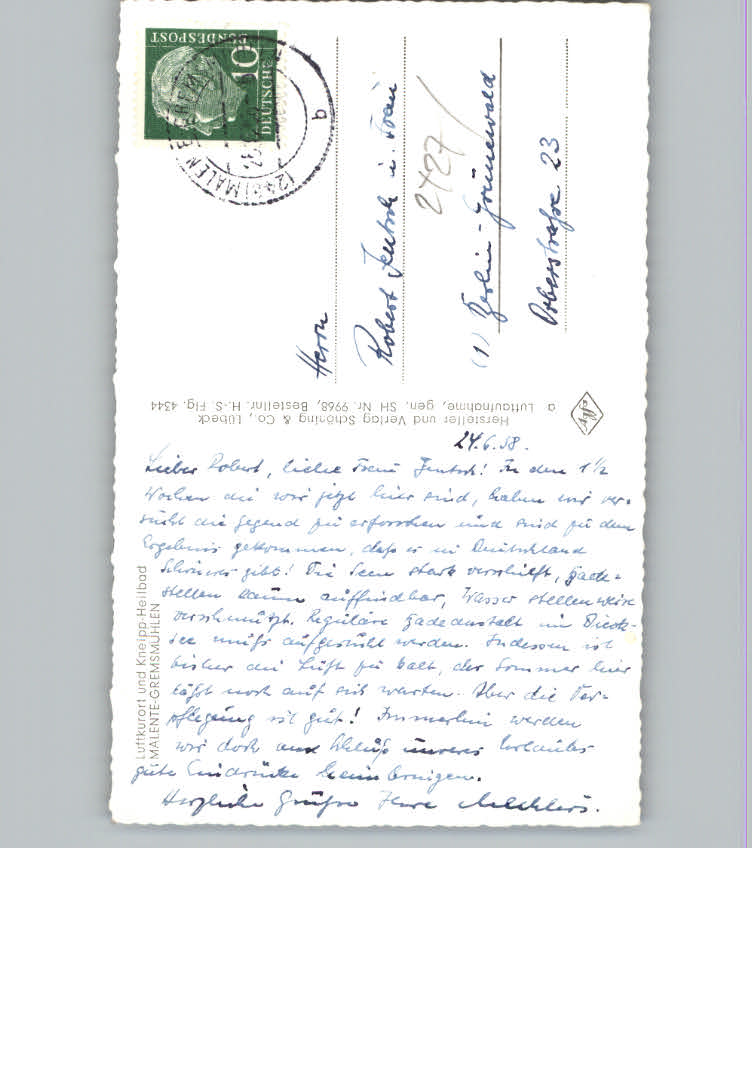 DEUTSCHE
BUNDESPOST
10
(24b) MALENTE-GREM
b
Herrn
Robert Jentsch u. Frau
2427/
(1) Berlin-Grunewald
Douglasstraße 23
Hersteller und Verlag Schöning & Co., Lübeck
a Luftaufnahme, gen. SH Nr. 9968, Bestellnr. H.-S. Flg. 4344
Luftkurort und Kneipp-Heilbad
MALENTE-GREMSMÜHLEN
24.6.58.
Lieber Robert, liebe Frau Jentsch! In den 1½
Wochen die wir jetzt hier sind, haben wir ver-
sucht die Gegend zu erforschen und sind zu dem
Ergebnis gekommen, daß es in Deutschland
Schöneres gibt! Die Seen stark verschilft, Bade-
stellen kaum auffindbar, Wasser stellenweise
verschmutzt. Reguläre Badeanstalt im Dieck-
see muß aufgesucht werden. Indessen ist
bisher die Luft zu kalt, der Sommer hier
läßt noch auf sich warten. Aber die Ver-
pflegung ist gut! Immerhin werden
wir doch am Schluß unseres Urlaubes
gute Eindrücke heimbringen.
Herzliche Grüße Ihre Melchers.